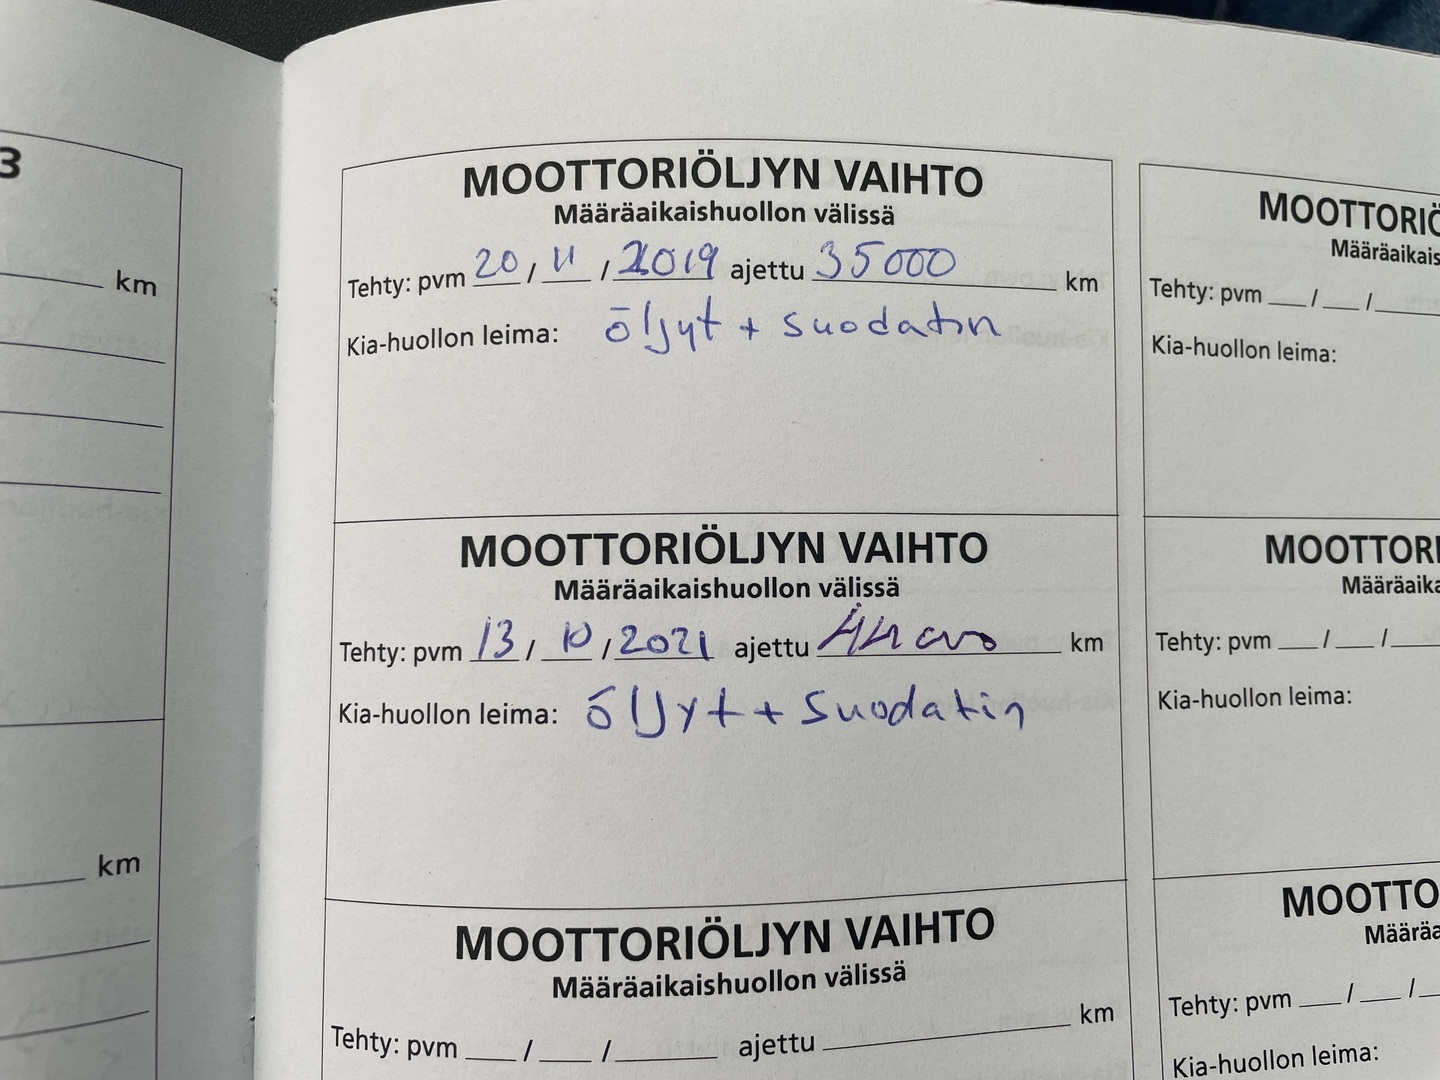 3
km
km
MOOTTORIÖLJYN VAIHTO
Määräaikaishuollon välissä
Tehty: pvm 20 / 11 / 2019 ajettu 35000 km
Kia-huollon leima: öljyt + suodatin
MOOTTORIÖLJYN VAIHTO
Määräaikaishuollon välissä
Tehty: pvm 13 / 10 / 2021 ajettu km
Kia-huollon leima: öljyt + suodatin
MOOTTORIÖLJYN VAIHTO
Määräaikaishuollon välissä
Tehty: pvm / / ajettu km
MOOTTORIÖ
Määräaikais
Tehty: pvm / /
Kia-huollon leima:
MOOTTORI
Määräaika
Tehty: pvm / /
Kia-huollon leima:
MOOTTO
Määräa
Tehty: pvm / /
Kia-huollon leima: